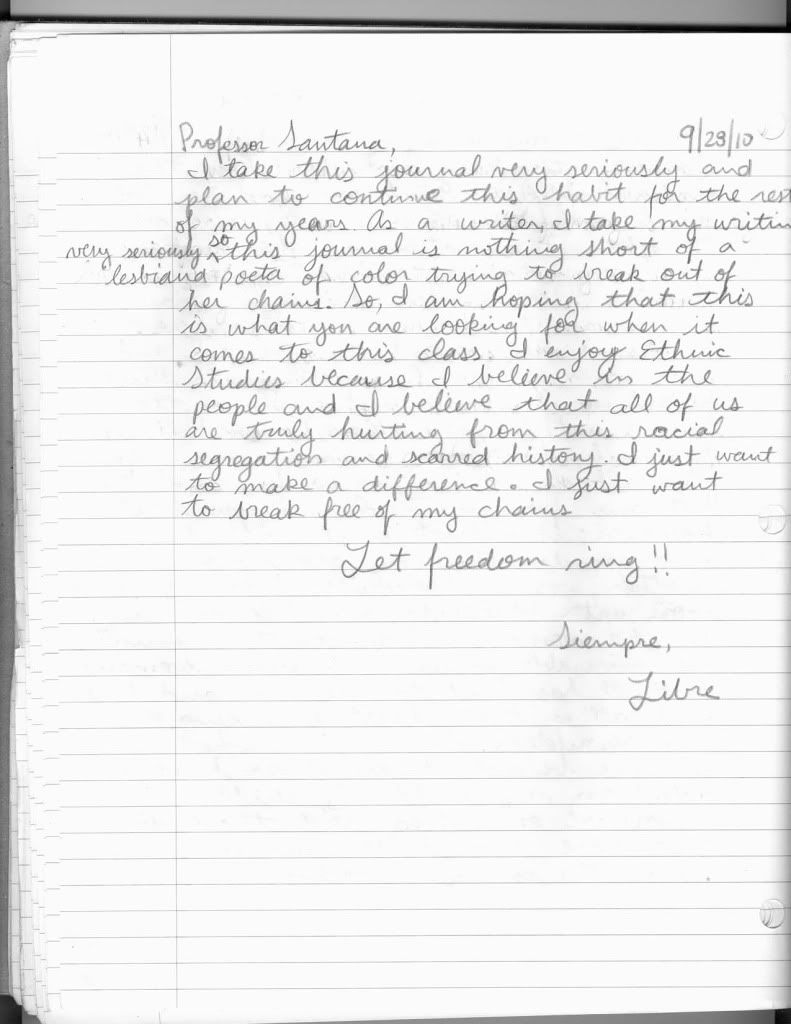 Professor Santana, 9/29/10
I take this journal very seriously and
plan to continue this habit for the rest
of my years. As a writer, I take my writin
very seriously so this journal is nothing short of a
lesbiana poeta of color trying to break out of
her chains. So, I am hoping that this
is what you are looking for when it
comes to this class. I enjoy Ethnic
Studies because I believe in the
people and I believe that all of us
are truly hurting from this racial
segregation and scarred history. I just want
to make a difference. I just want
to break free of my chains
Let freedom ring!!
Siempre,
Libre